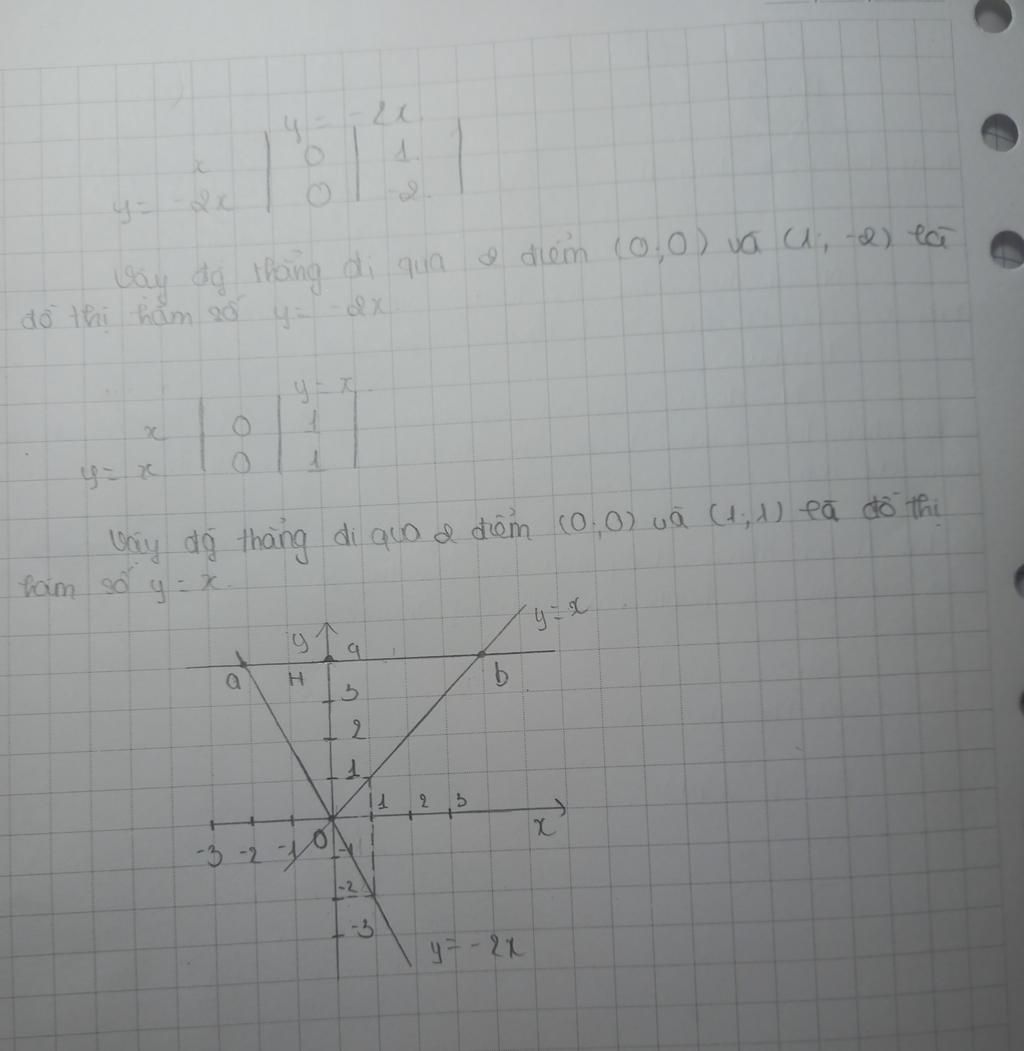 y = -2x
x | 0 | 1 |
y = -2x | 0 | -2 |
Vậy đg thẳng đi qua 2 điểm (0;0) và (1; -2) là
đồ thị hàm số y = -2x
y = x
x | 0 | 1 |
y = x | 0 | 1 |
Vậy đg thẳng đi qua 2 điểm (0;0) và (1;1) là đồ thị
hàm số y = x.
y = x
y 4
a H b
3
2
1
1 2 3
x
-3 -2 -1 O
-1
-2
-3
y = -2x